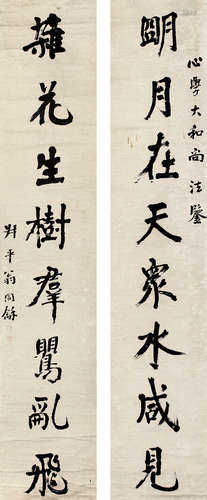 心學大和尚法鑒
朙月在天眾水咸見
雜花生樹羣鶯亂飛
叔平翁同龢